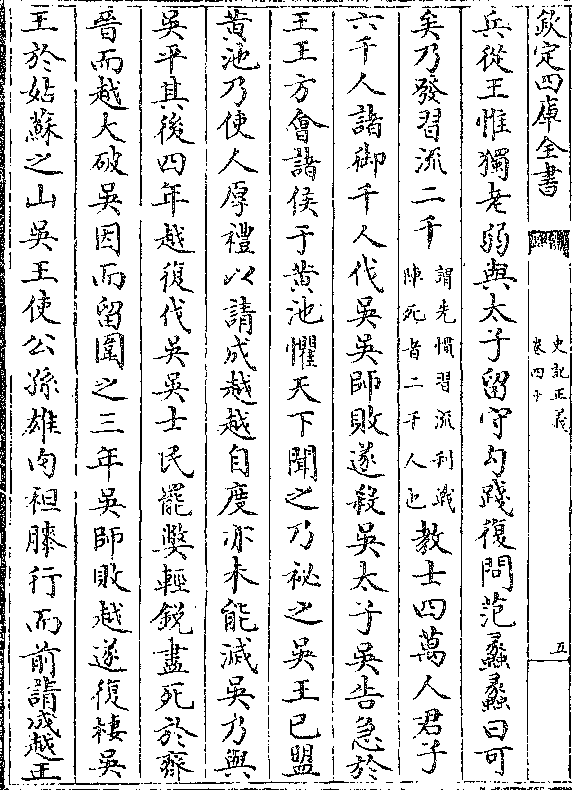 欽定四庫全書
史記正義
卷四十
五
兵從王惟獨老弱與太子留守勾踐復問范蠡蠡曰可
矣乃發習流二千
謂先慣習流利戰
陣死者二千人也
教士四萬人君子
六千人諸御千人伐吳吳師敗遂殺吳太子吳告急於
王王方會諸侯于黄池懼天下聞之乃祕之吳王已盟
黄池乃使人厚禮以請成越越自度亦未能滅吳乃與
吳平其後四年越復伐吳吳士民罷獘輕銳盡死於齊
晉而越大破吳因而留圍之三年吳師敗越遂復棲吳
王於姑蘇之山吳王使公孫雄肉袒膝行而前請成越王